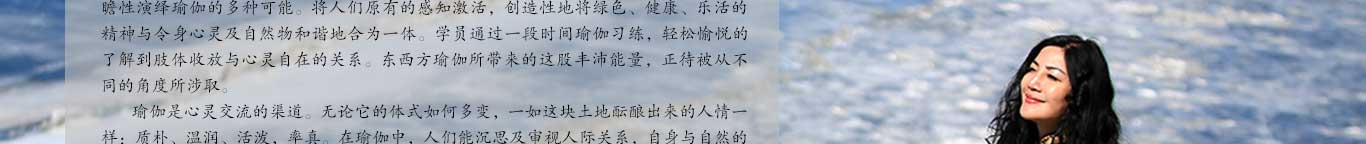 瞻性演绎瑜伽的多种可能。将人们原有的感知激活，创造性地将绿色、健康、乐活的
精神与令身心灵及自然物和谐地合为一体。学员通过一段时间瑜伽习练，轻松愉悦的
了解到肢体收放与心灵自在的关系。东西方瑜伽所带来的这股丰沛能量，正待被从不
同的角度所涉取。
瑜伽是心灵交流的渠道。无论它的体式如何多变，一如这块土地酝酿出来的人情一
样：质朴、温润、活泼，率真。在瑜伽中，人们能沉思及审视人际关系，自身与自然的